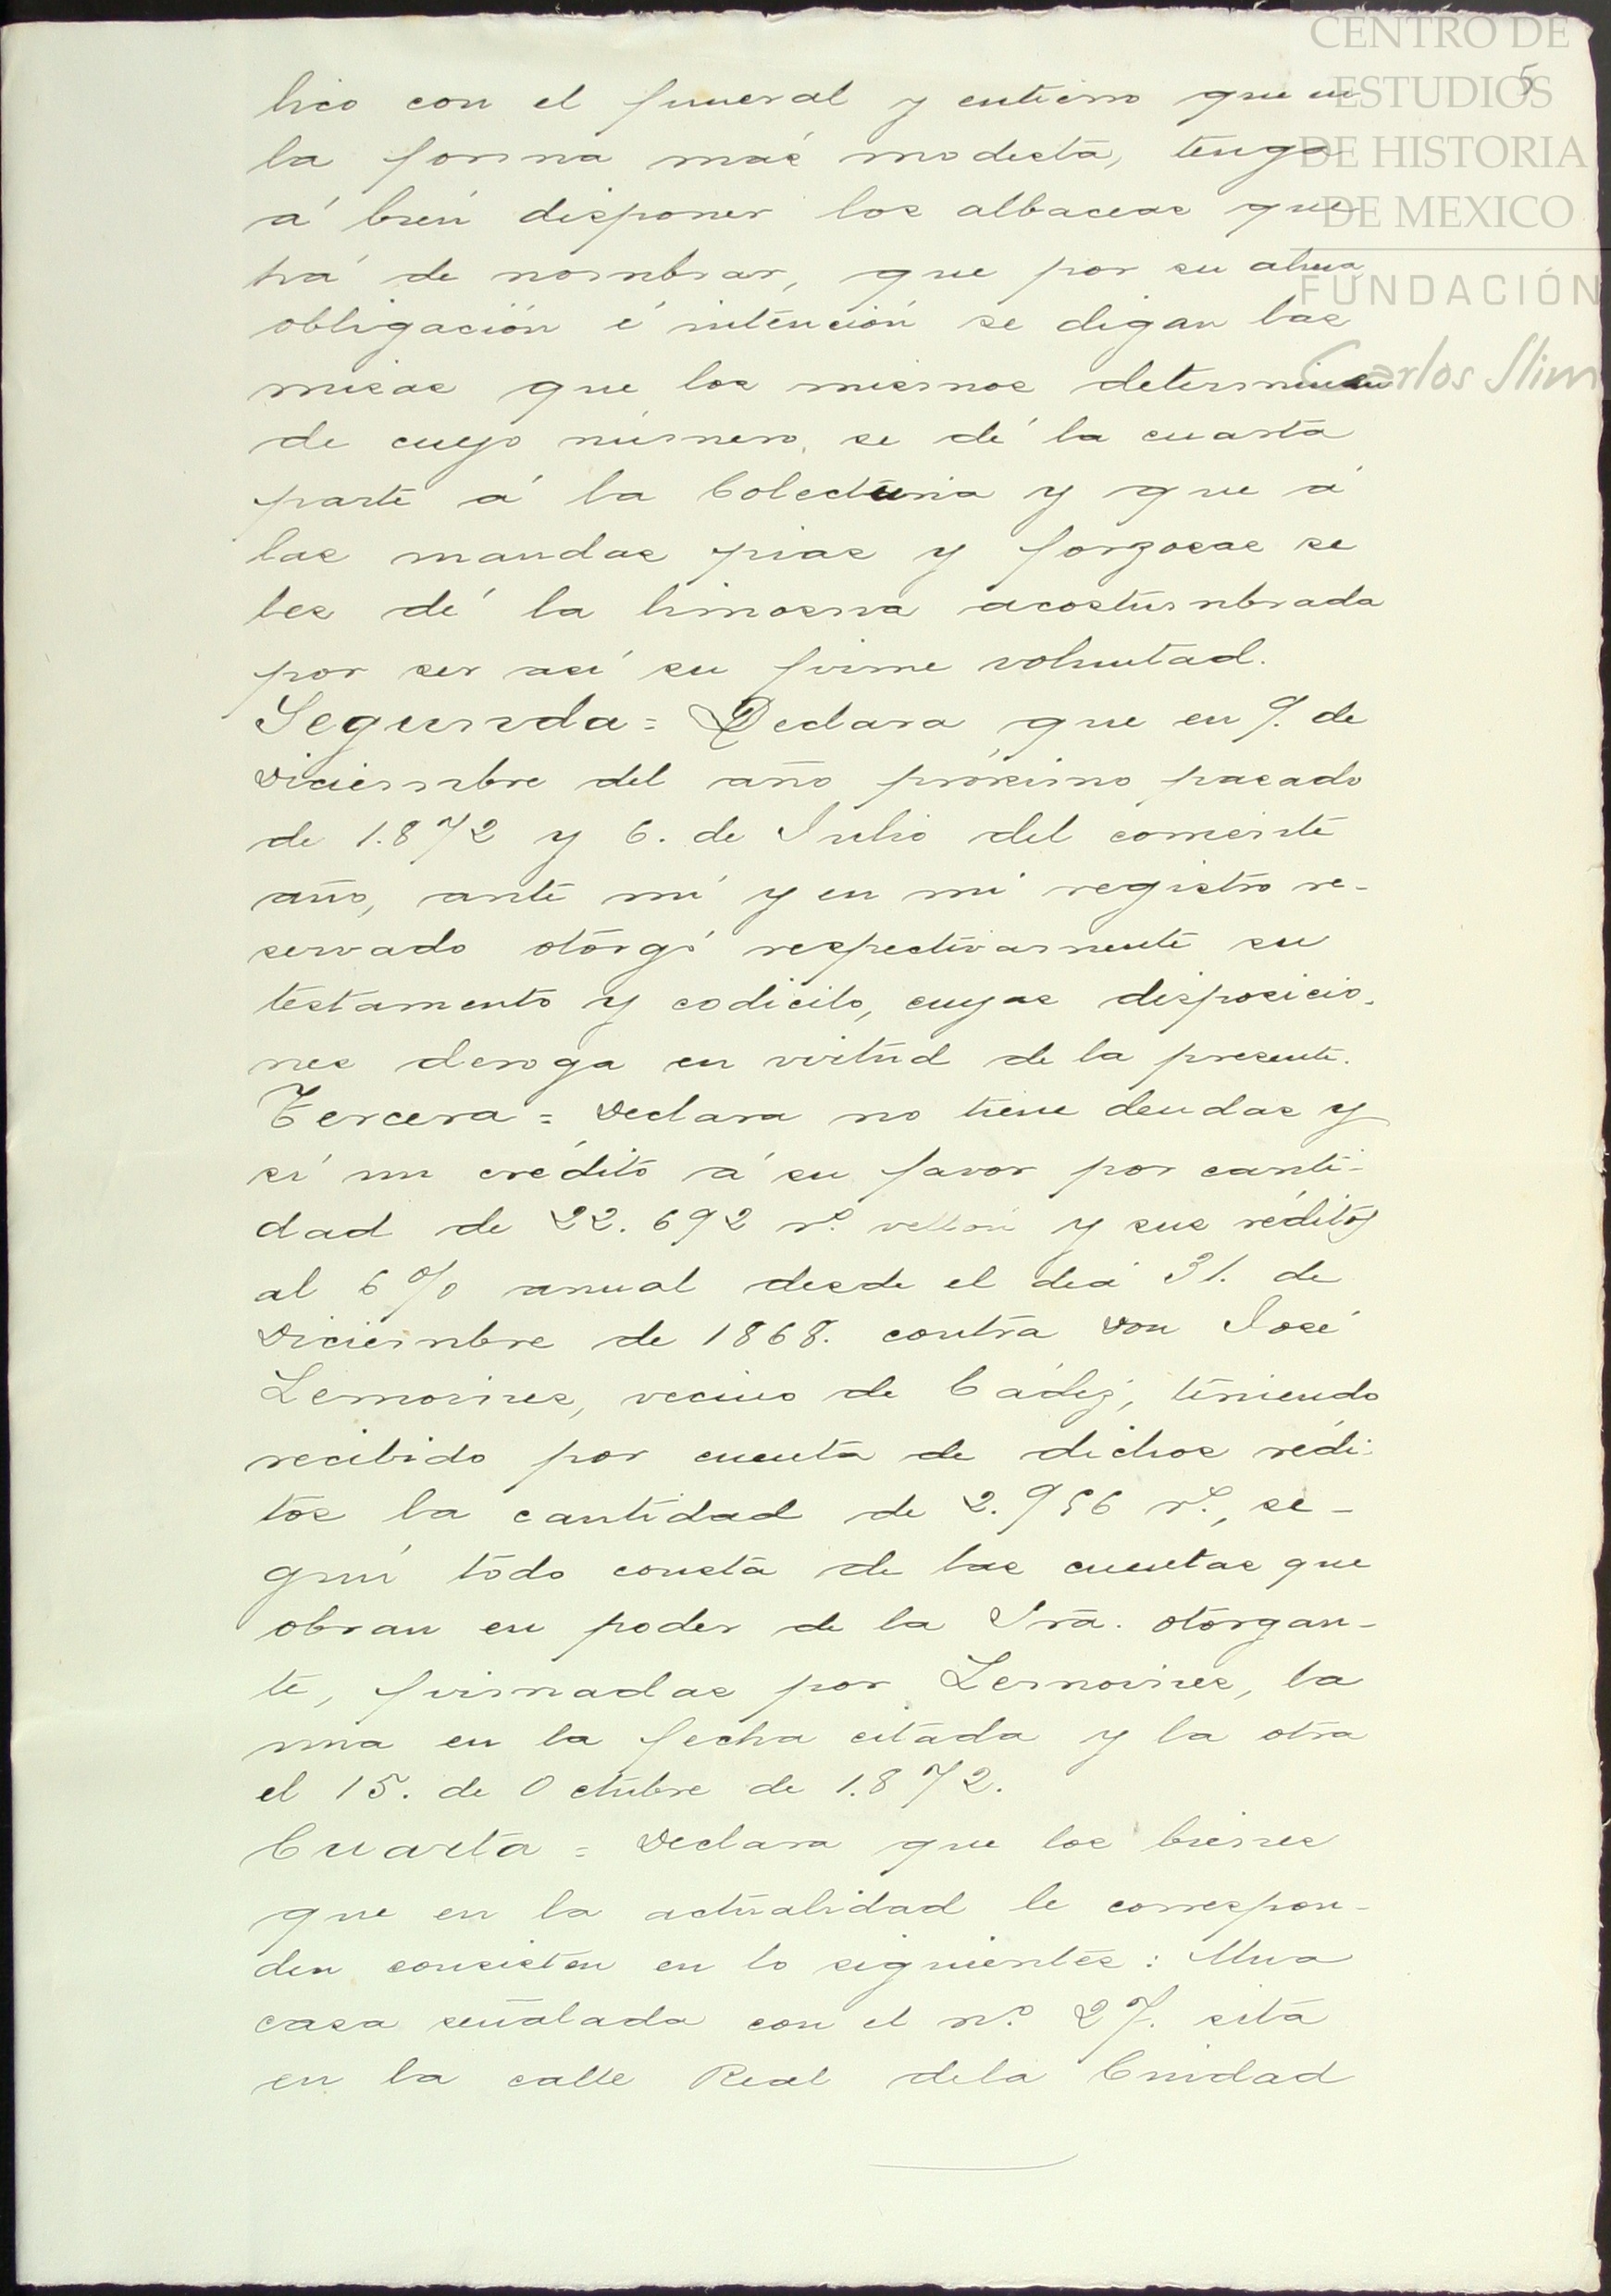 CENTRO DE
ESTUDIOS
DE HISTORIA
DE MEXICO
FUNDACIÓN
Carlos Slim
5
lico con el funeral y entierro que en
la forma más modesta, tenga
á bién disponer los albaceas que
há de nombrar, que por su alma
obligación é intención se digan las
misas que los mismos determinen
de cuyo número, se dé la cuarta
parte á la Colecturia y que á
las mandas pias y forzosas se
les dé la limosna acostumbrada
por ser así su firme voluntad.
Segunda = Declara que en 9. de
Diciembre del año próximo pasado
de 1.872 y 6. de Julio del corriente
año, ante mí y en mi registro re-
servado otorgó respectivamente su
testamento y codicilo, cuyas disposicio-
nes deroga en virtud de la presente.
Tercera = Declara no tiene deudas y
sí un crédito á su favor por canti-
dad de 22.692 rs. vellón y sus réditos
al 6 % anual desde el día 31. de
Diciembre de 1868. contra Don José
Lemoines, vecino de Cádiz, teniendo
recibido por cuenta de dichos rédi-
tos la cantidad de 2.956 rs., se-
gún todo consta de las cuentas que
obran en poder de la Sra. otorgan-
te, firmadas por Lemoines, la
una en la fecha citada y la otra
el 15. de Octubre de 1.872.
Cuarta = Declara que los bienes
que en la actualidad le correspon-
den consisten en lo siguientes: Una
casa señalada con el nº. 27. sita
en la calle Real dela Ciudad